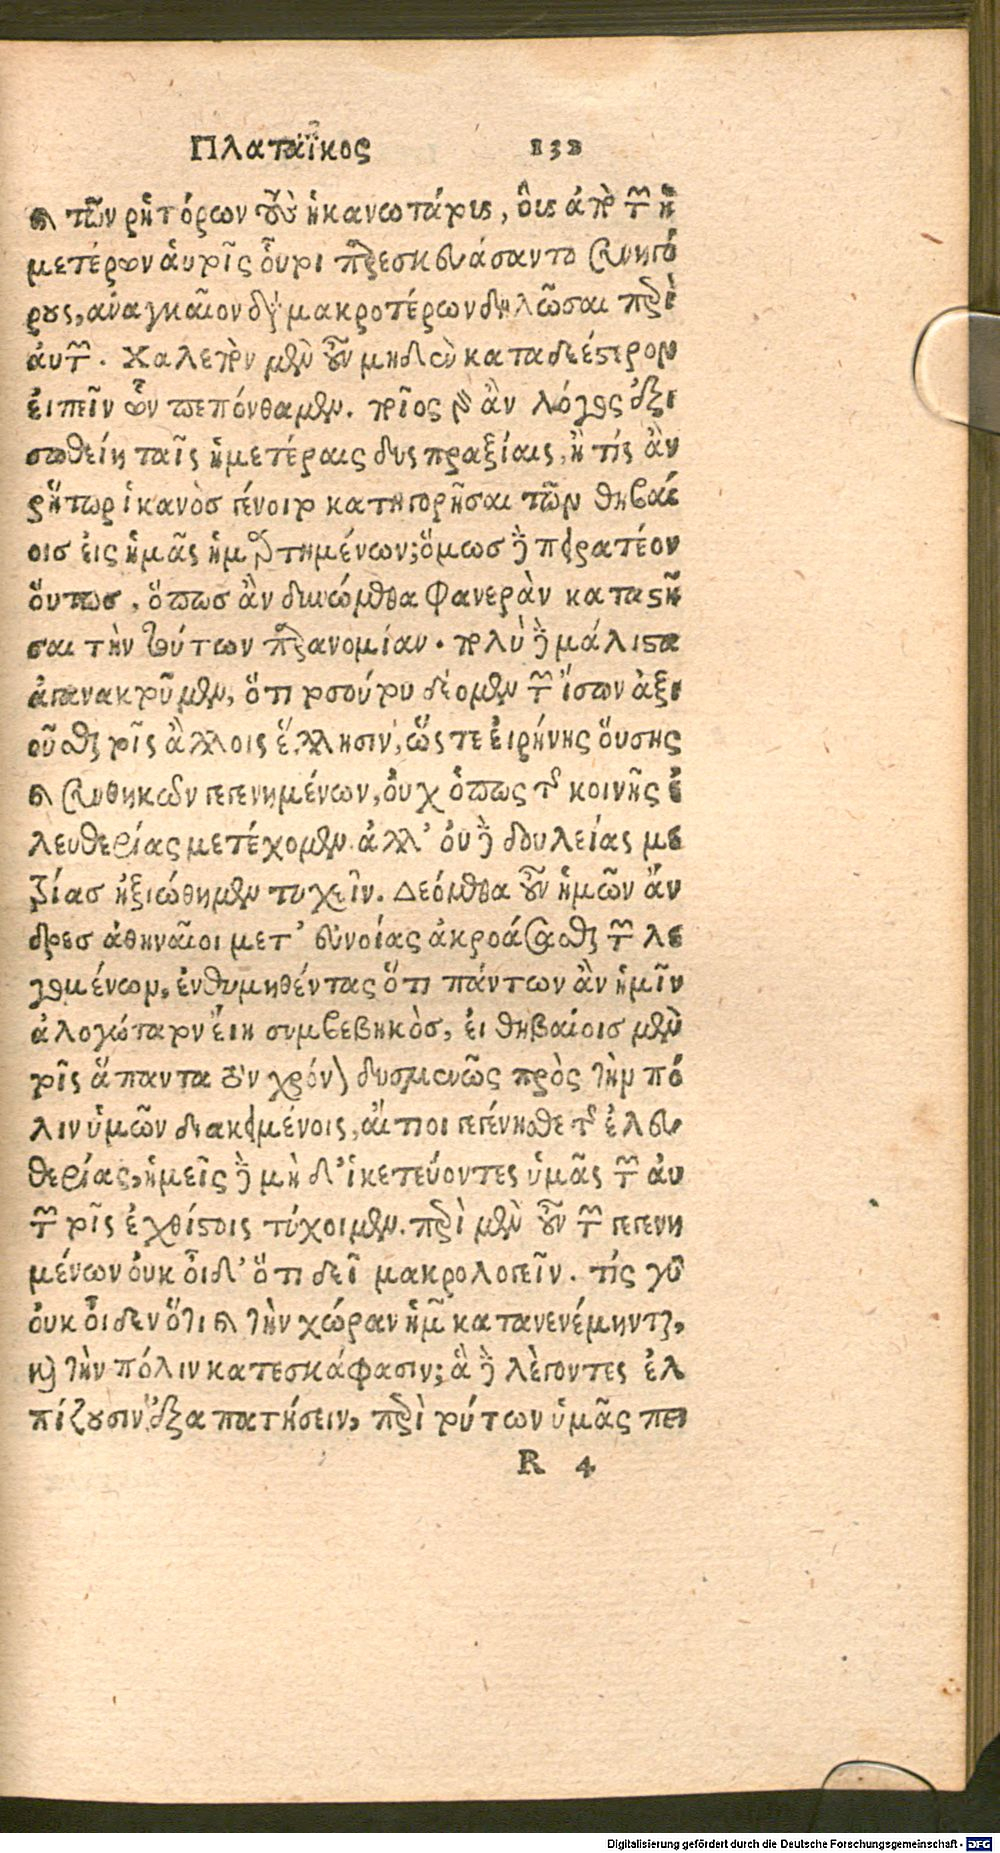 Πλαταϊκος 132
καὶ τῶν ῥητόρων τοὺς ἱκανωτάτους, οὓς ἀπὸ τῶν ἡ
μετέρων αὑτοῖς οὗτοι παρεσκευάσαντο συνηγό
ρους, ἀναγκαῖον διὰ μακροτέρων δηλῶσαι περὶ
ἀυτῶν. Χαλεπὸν μὲν οὖν μηδὲν καταδεέστερον
ἐιπεῖν ὧν πεπόνθαμεν. ποῖος γὰρ ἂν λόγος ἐξι
σωθείη ταῖς ἡμετέραις δυς πραξίαις, ἢ τίς ἂν
ῥήτωρ ἱκανὸσ γένοιτο κατηγορῆσαι τῶν θηβαί
οισ ἐις ἡμᾶς ἡμαρτημένων; ὅμωσ δὲ πειρατέον
ὅυτωσ, ὅπωσ ἂν δυνώμεθα φανερὰν καταστῆ
σαι τὴν τούτων παρανομίαν. πολὺ δὲ μάλιστα
ἀγανακτοῦμεν, ὅτι τοσούτου δέομεν τῶν ἴσων ἀξι
οῦσθαι τοῖς ἄλλοις ἕλλησιν, ὥς τε ἐιρήνης ὄυσης
καὶ συνθηκῶν γεγενημένων, ὀυχ ὅπως τῆς κοινῆς ἐ
λευθερίας μετέχομεν ἀλλ' ὀυδὲ δουλείας με
τρίασ ἠξιώθημεν τυχεῖν. Δεόμεθα οὖν ἡμῶν ἄν
δρεσ ἀθηναῖοι μετ' ἐυνοίας ἀκροάσασθαι τῶν λε
γομένων, ἐνθυμηθέντας ὅτι πάντων ἂν ἡμῖν
ἀλογώτατον ἔιη συμβεβηκὸς, ἐι θηβαίοισ μὲν
τοῖς ἅπαντα τὸν χρόνον δυσμενῶς πρὸς τὴν πό
λιν ὑμῶν διακειμένοις, ἄιτιοι γεγένησθε τῆς ἐλευ
θερίας, ἡμεῖς δὲ μὴ δ' ἱκετεύοντες ὑμᾶς τῶν ἀυ
τῶν τοῖς ἐχθίστοις τύχοιμεν. περὶ μὲν οὖν τῶν γεγενη
μένων ὀυκ ὀῖδ' ὅτι δεῖ μακρολογεῖν. τίς γὰρ
ὀυκ ὀῖδεν ὅτι καὶ τὴν χώραν ἡμῶν κατανενέμηνται,
καὶ τὴν πόλιν κατεσκάφασιν; ἃ δὲ λέγοντες ἐλ
πίζουσιν ἐξαπατήσειν, περὶ τούτων ὑμᾶς πει
R 4
Digitalisierung gefördert durch die Deutsche Forschungsgemeinschaft - DFG